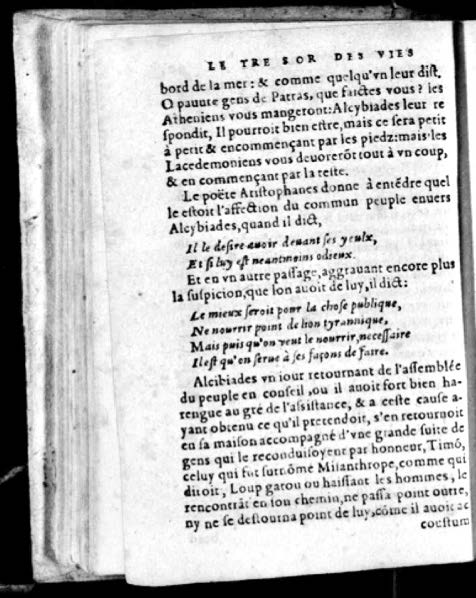 LE TRESOR DES VIES
bord de la mer: & comme quelqu'vn leur dist.
O pauure gens de Patras, que faictes vous? les
Atheniens vous mangeront: Alcybiades leur re
spondit, Il pourroit bien estre, mais ce sera petit
à petit & encommençant par les piedz: mais les
Lacedemoniens vous deuorerõt tout à vn coup,
& en commençant par la teste.
Le poëte Aristophanes donne à entẽdre quel
le estoit l'affection du commun peuple enuers
Alcybiades, quand il dict,
Il le desire auoir deuant ses yeulx,
Et si luy est neantmoins odieux.
Et en vn autre passage, aggrauant encore plus
la suspicion, que lon auoit de luy, il dict:
Le mieux seroit pour la chose publique,
Ne nourrir point de lion tyrannique,
Mais puis qu'on veut le nourrir, necessaire
Il est qu'on serue à ses façons de faire.
Alcibiades vn iour retournant de l'assemblée
du peuple en conseil, ou il auoit fort bien ha-
rengue au gré de l'assistance, & a ceste cause a-
yant obtenu ce qu'il pretendoit, s'en retournoit
en sa maison accompagné d'vne grande suite de
gens qui le reconduisoyent par honneur, Timõ,
celuy qui fut surnõme Misanthrope, comme qui
diroit, Loup garou ou haissant les hommes, le
rencontrãt en son chemin, ne passa point outre,
ny ne se destourna point de luy, cõme il auoit ac
coustum